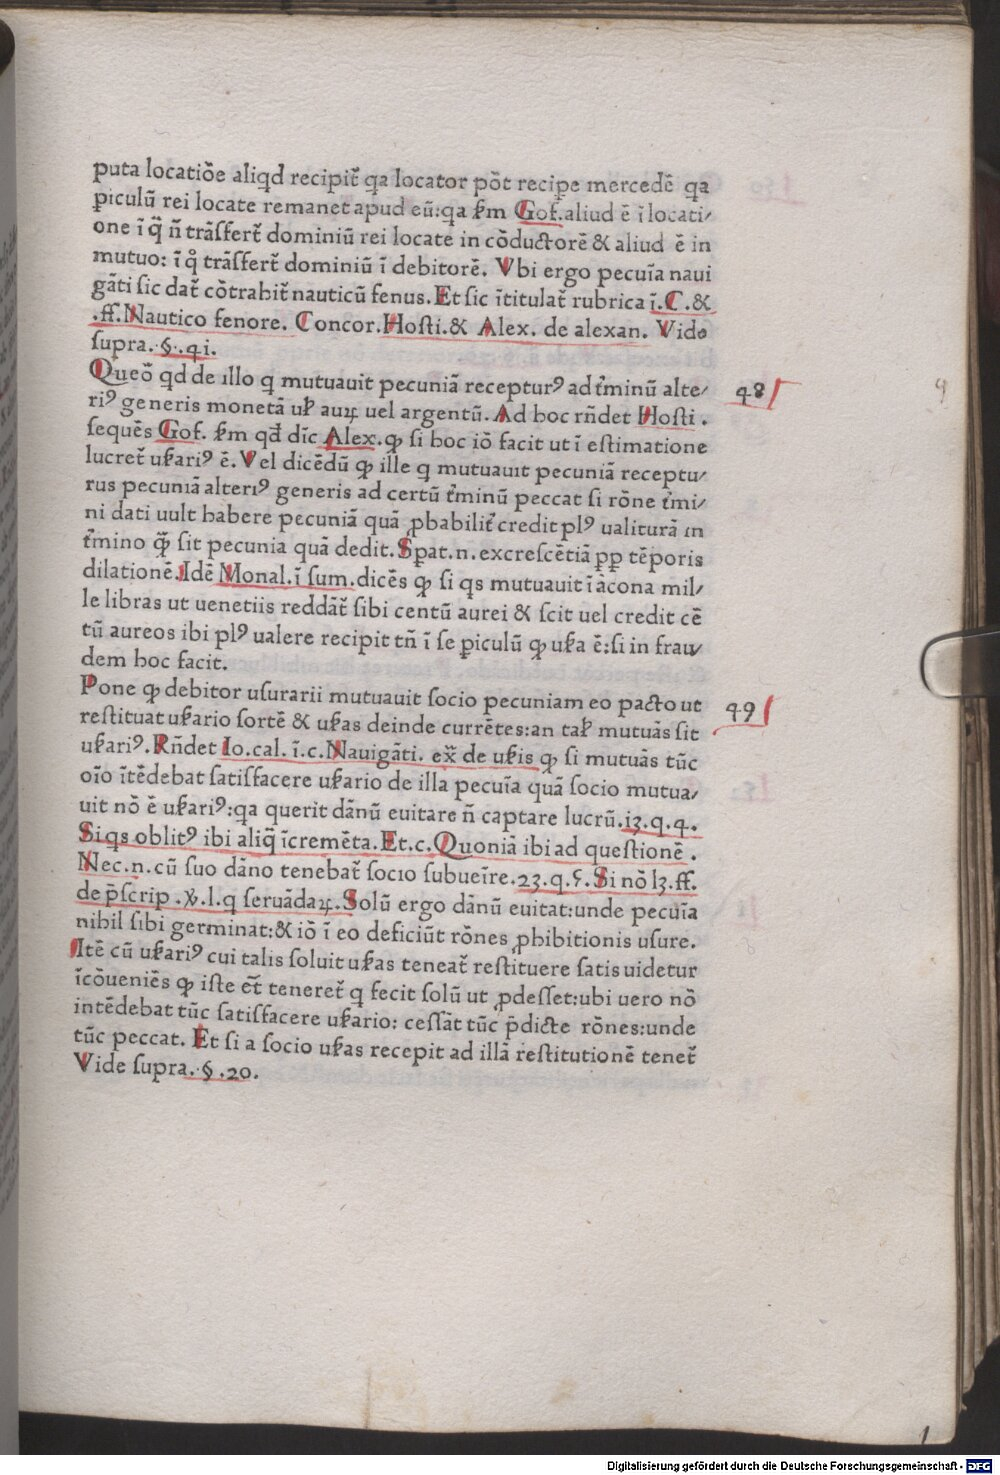 puta locatiōe aliqd recipit̃ qa locator pōt recipe mercedē qa
ꝑiculū rei locate remanet apud eū:qa ẜm Gof.aliud ē ī locati/
one ī q̃ ñ trāsfert̃ dominiū rei locate in cōductorē & aliud ē in
mutuo: ī q̊ trāsfert̃ dominiū ī debitorē. Vbi ergo pecuīa naui
gāti sic dat̃ cōtrahit̃ nauticū fenus. Et sic ītitulat̃ rubrica ī.C.&
.ff.Nautico fenore. Concor.Hosti.& Alex. de alexan. Vide
supra.§.41.
Queō qd de illo q mutuauit pecuniā recepturꝰ ad t̃minū alte/ 48
riꝰ generis monetā ul̵ auꝝ uel argentū. Ad hoc rñdet Hosti.
sequēs Gof. ẜm qd̄ dīc Alex.ꝙ si hoc iō facit ut ī estimatione
lucret̃ uẜariꝰ ē. Vel dicēdū ꝙ ille q mutuauit pecuniā receptu/
rus pecuniā alteriꝰ generis ad certū t̃minū peccat si rōne t̃mi/
ni dati uult habere pecuniā quā ꝓbabilit̃ credit plꝰ ualiturā in
t̃mino q̄̃ sit pecunia quā dedit. Spat.n.excrescētiā ꝓp tēporis
dilationē.Idē Monal.ī sum.dicēs ꝙ si qs mutuauit ī ācona mil/
le libras ut uenetiis reddāt̃ sibi centū aurei & scit uel credit cē
tū aureos ibi plꝰ ualere recipit tñ ī se ꝑiculū ꝙ uẜa ē:si in frau/
dem hoc facit.
Pone ꝙ debitor usurarii mutuauit socio pecuniam eo pacto ut 49
restituat uẜario sortē & uẜas deinde currētes:an tal̵ mutuās sit
uẜariꝰ. Rñdet Io.cal.ī.c.Nauigāti. ex̃ de uẜis ꝙ si mutuās tūc
oīo ītēdebat satisfacere uẜario de illa pecuīa quā socio mutua/
uit nō ē uẜariꝰ:qa querit dānū euitare ñ captare lucrū.13.q.4.
Siqs oblitꝰ ibi aliq̄ īcremēta.Et.c.Quoniā ibi ad questionē.
Nec.n.cū suo dāno tenebat̃ socio subueīre.23.q.5.Si nō lꝫ.ff.
de p̄scrip.ꝟ.l.q seruādaꝝ.Solū ergo dānū euitat:unde pecuīa
nihil sibi germinat:& iō ī eo deficiūt rōnes ꝓhibitionis usure.
Itē cū uẜariꝰ cui talis soluit uẜas teneat̃ restituere satis uidetur
īcōueniēs ꝙ iste et̄ teneret̃ q fecit solū ut ꝓdesset:ubi uero nō
intēdebat tūc satisfacere uẜario: cessāt tūc p̄dicte rōnes:unde
tūc peccat. Et si a socio uẜas recepit ad illā restitutionē tenet̃
Vide supra.§.20.
Digitalisierung gefördert durch die Deutsche Forschungsgemeinschaft - DFG